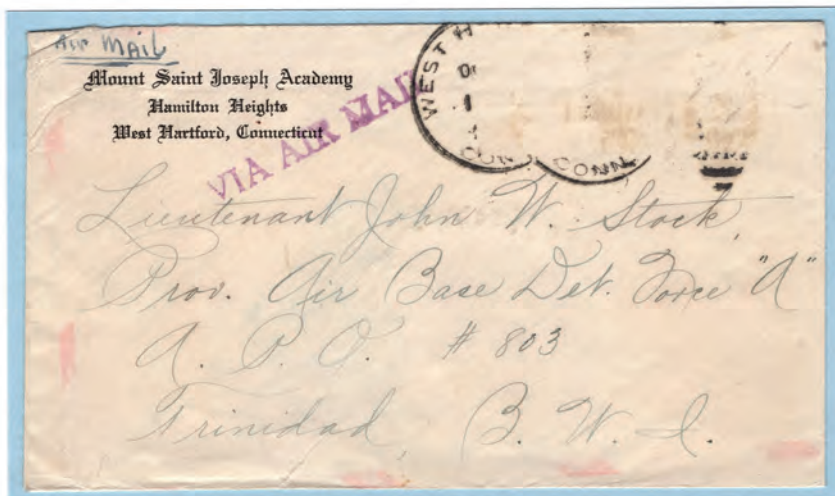 Air Mail
Mount Saint Joseph Academy
Hamilton Heights
West Hartford, Connecticut
VIA AIR MAIL
WEST
CONN
CONN.
Lieutenant John W. Stock,
Prov. Air Base Det. Force "A"
A. P. O. # 803
Trinidad, B. W. I.